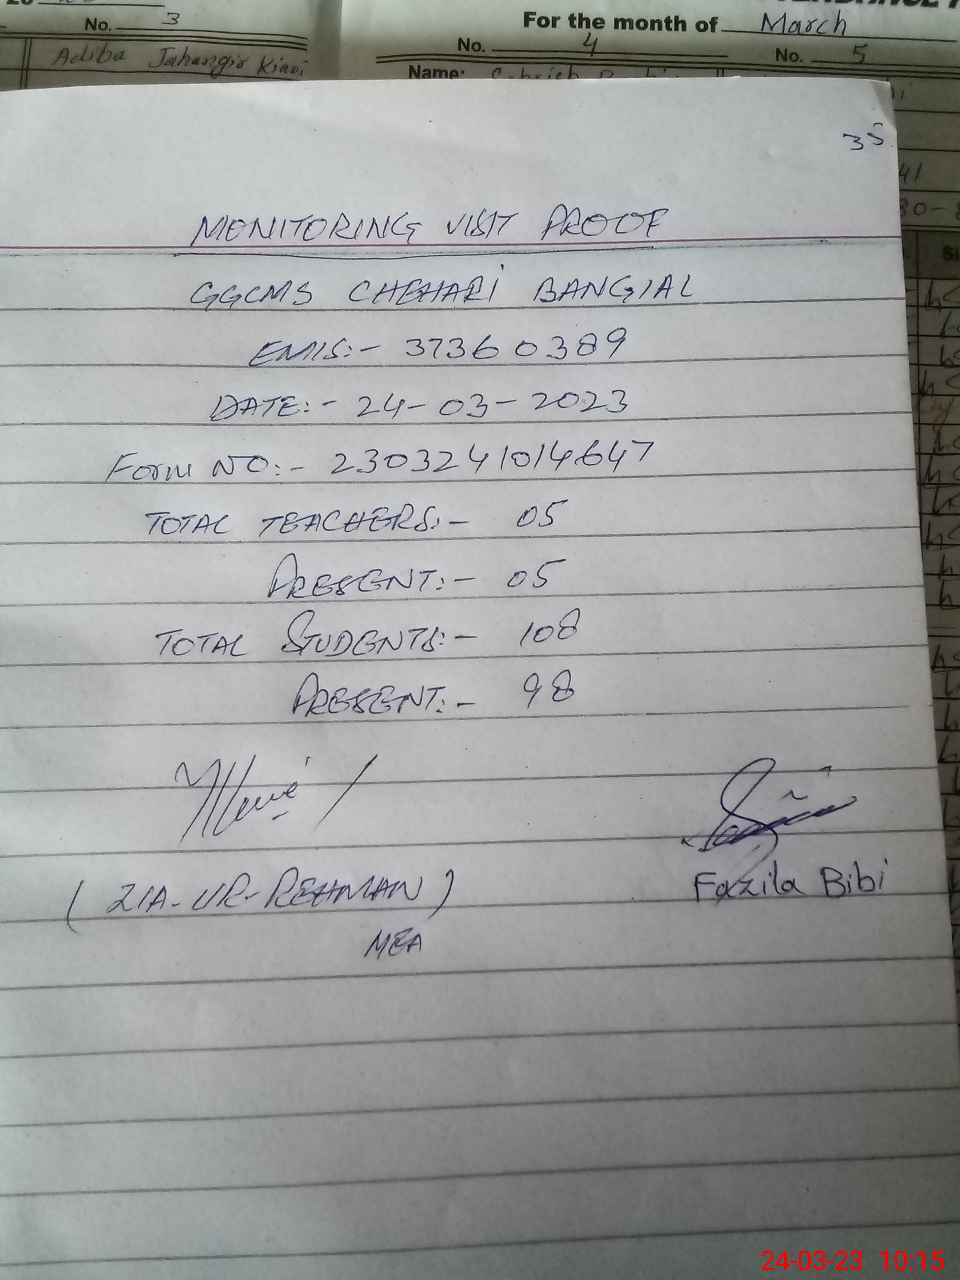 No. 3
Adiba Jahangir Kiani
For the month of March
No. 4
No. 5
Name:
35
MONITORING VISIT PROOF
GGCMS CHEHARI BANGIAL
EMIS:- 37360389
DATE:- 24-03-2023
Form NO:- 2303241014647
TOTAL TEACHERS:- 05
PRESENT:- 05
TOTAL STUDENTS:- 108
PRESENT:- 98
(ZIA-UR-REHMAN)
MEA
Fazila Bibi
24-03-23 10:15